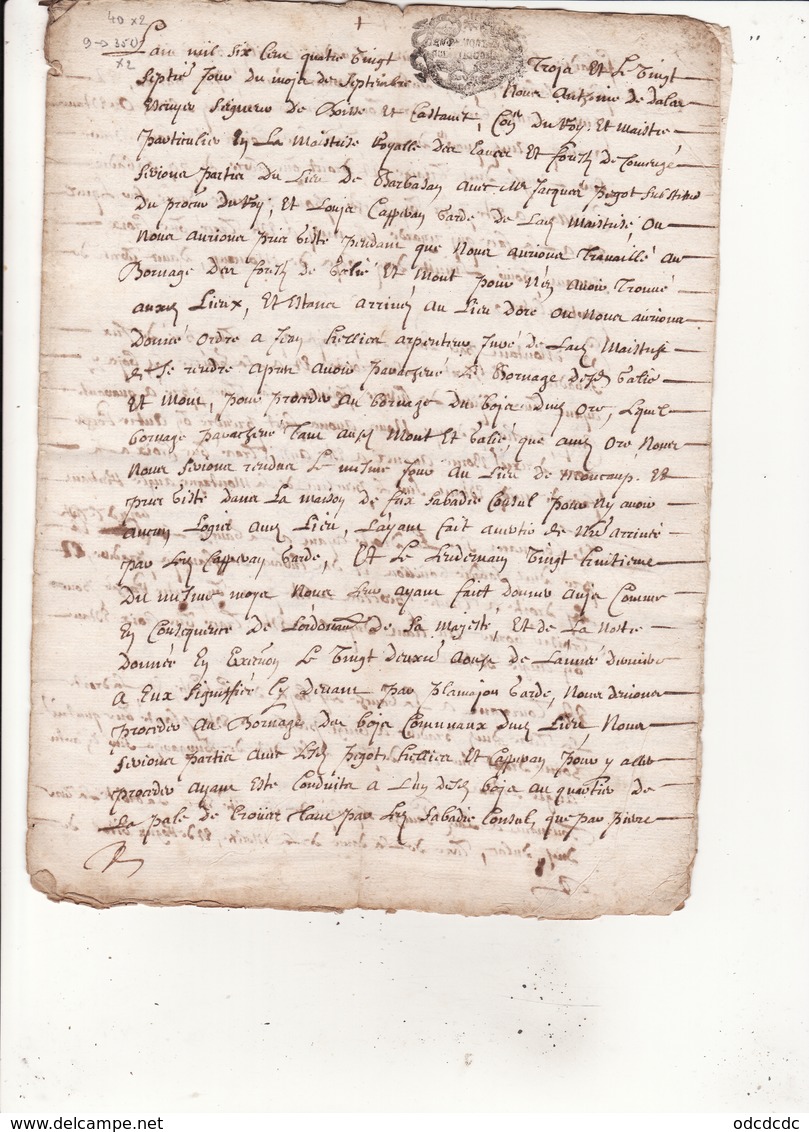 40 x2
9 -> 350
x2
Lan mil six cens quatre vingt Trois Et le vingt
septie Jour du mois de Septembre Nous Anthoine de Dalas
Escuyer Seigneur de Et Castanet, Coner Du Roy Et Maistre
particulier En La Maistrise Royalle des Eaues Et forestz de Comenge
Serions partis Du Lieu De Barbasan avec Mr Jacques pegot Substitut
Du procur Du Roy, Et Louis Cappevan Garde de Lad Maistrise, Ou
Nous aurions pris giste pendant que Nous aurions Travaillé au
Bornage des forestz de Galié Et Mont pour N'en avoir Trouvé
ausd Lieux, Et Estans arrivés Au Lieu Dore ou Nous aurions
Donné ordre a Jean hellies arpenteur Juré de Lad Maistrise
de Se rendre apres avoir parachevé Le Bornage Desd Galié
Et Mont, pour proceder au bornage Du bois Dud Ore, Lequel
bornage parachevé Tant ausd Mont Et Galié, que aud Ore Nous
Nous Serions rendus Le mesme Jour Au Lieu de Moncaup. Et
pris giste dans La maison de feu Sabadie Consul pour N'y avoir
aucun Logis aud Lieu, L'ayant fait avertir de Nre arrivée
par Led Cappevan Garde, Et Le Lendemain Vingt huitieme
Du mesme mois Nous Leur ayant faict donner avis Comme
En Consequence De Lordonnance De Sa Majesté, Et de La Nostre
Donnée En Le Vingt deuxie Aoust de Lannee derniere
A Eux Signiffiée Cy devant par Plamajou Garde, Nous devions
proceder Au Bornage Des bois Communaux Dud Lieu, Nous
Serions partis avec Lesd pegot hellies Et Cappevan pour y aller
proceder ayant Esté Conduits a L'un desd bois au quartier de
La pale de Crouat Tant par Led Sabadie Consul, que par pierre
odcdcdc